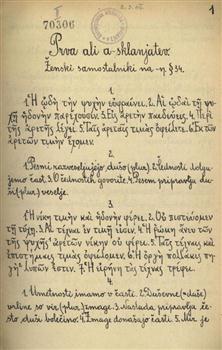 1
70306
Prva ali a-sklanjatev.
Ženski samostalniki na -η § 34.
1
1. Ἡ ᾠδὴ τὴν ψυχὴν εὐφραίνει. 2. Αἱ ᾠδαὶ τῇ ψυ-
χῇ ἡδονὴν παρέχουσιν. 3. Εἰς ἀρετὴν παιδεύεις. 4. Περὶ
τῆς ἀρετῆς λέγει. 5. Ταῖς ἀρεταῖς τιμὰς ὀφείλετε. 6. Ἐκ τῶν
ἀρετῶν τιμὴν ἔχομεν.
2
1. Pesmi razveseljujejo dušo (plur.). 2. Čednosti dolgu-
jemo čast. 3. O čednostih govorite. 4. Pesem pripravlja du-
ši (plur.) veselje.
3
1. Ἡ νίκη τιμὴν καὶ ἡδονὴν φέρει. 2. Οὐ πιστεύομεν
τῇ τύχῃ. 3. Αἱ τέχναι ἐν τιμῇ εἰσιν. 4. Ἡ ῥώμη ἄνευ τῶν
τῆς ψυχῆς ἀρετῶν νίκην οὐ φέρει. 5. Ταῖς τέχναις καὶ
ἐπιστήμαις τιμὰς ὀφείλομεν. 6. Ἡ ὀργὴ πολλάκις πη-
γὴ λυπῶν ἐστιν. 7. Ἡ εἰρήνη τὰς τέχνας τρέφει.
4
1. Umetnosti imamo v časti. 2. Duševne (= duše)
vrline so vir (plur.) zmage. 3. Naslada pripravlja če-
sto duši bolečino. 4. Zmage donašajo časti. 5. Mir je